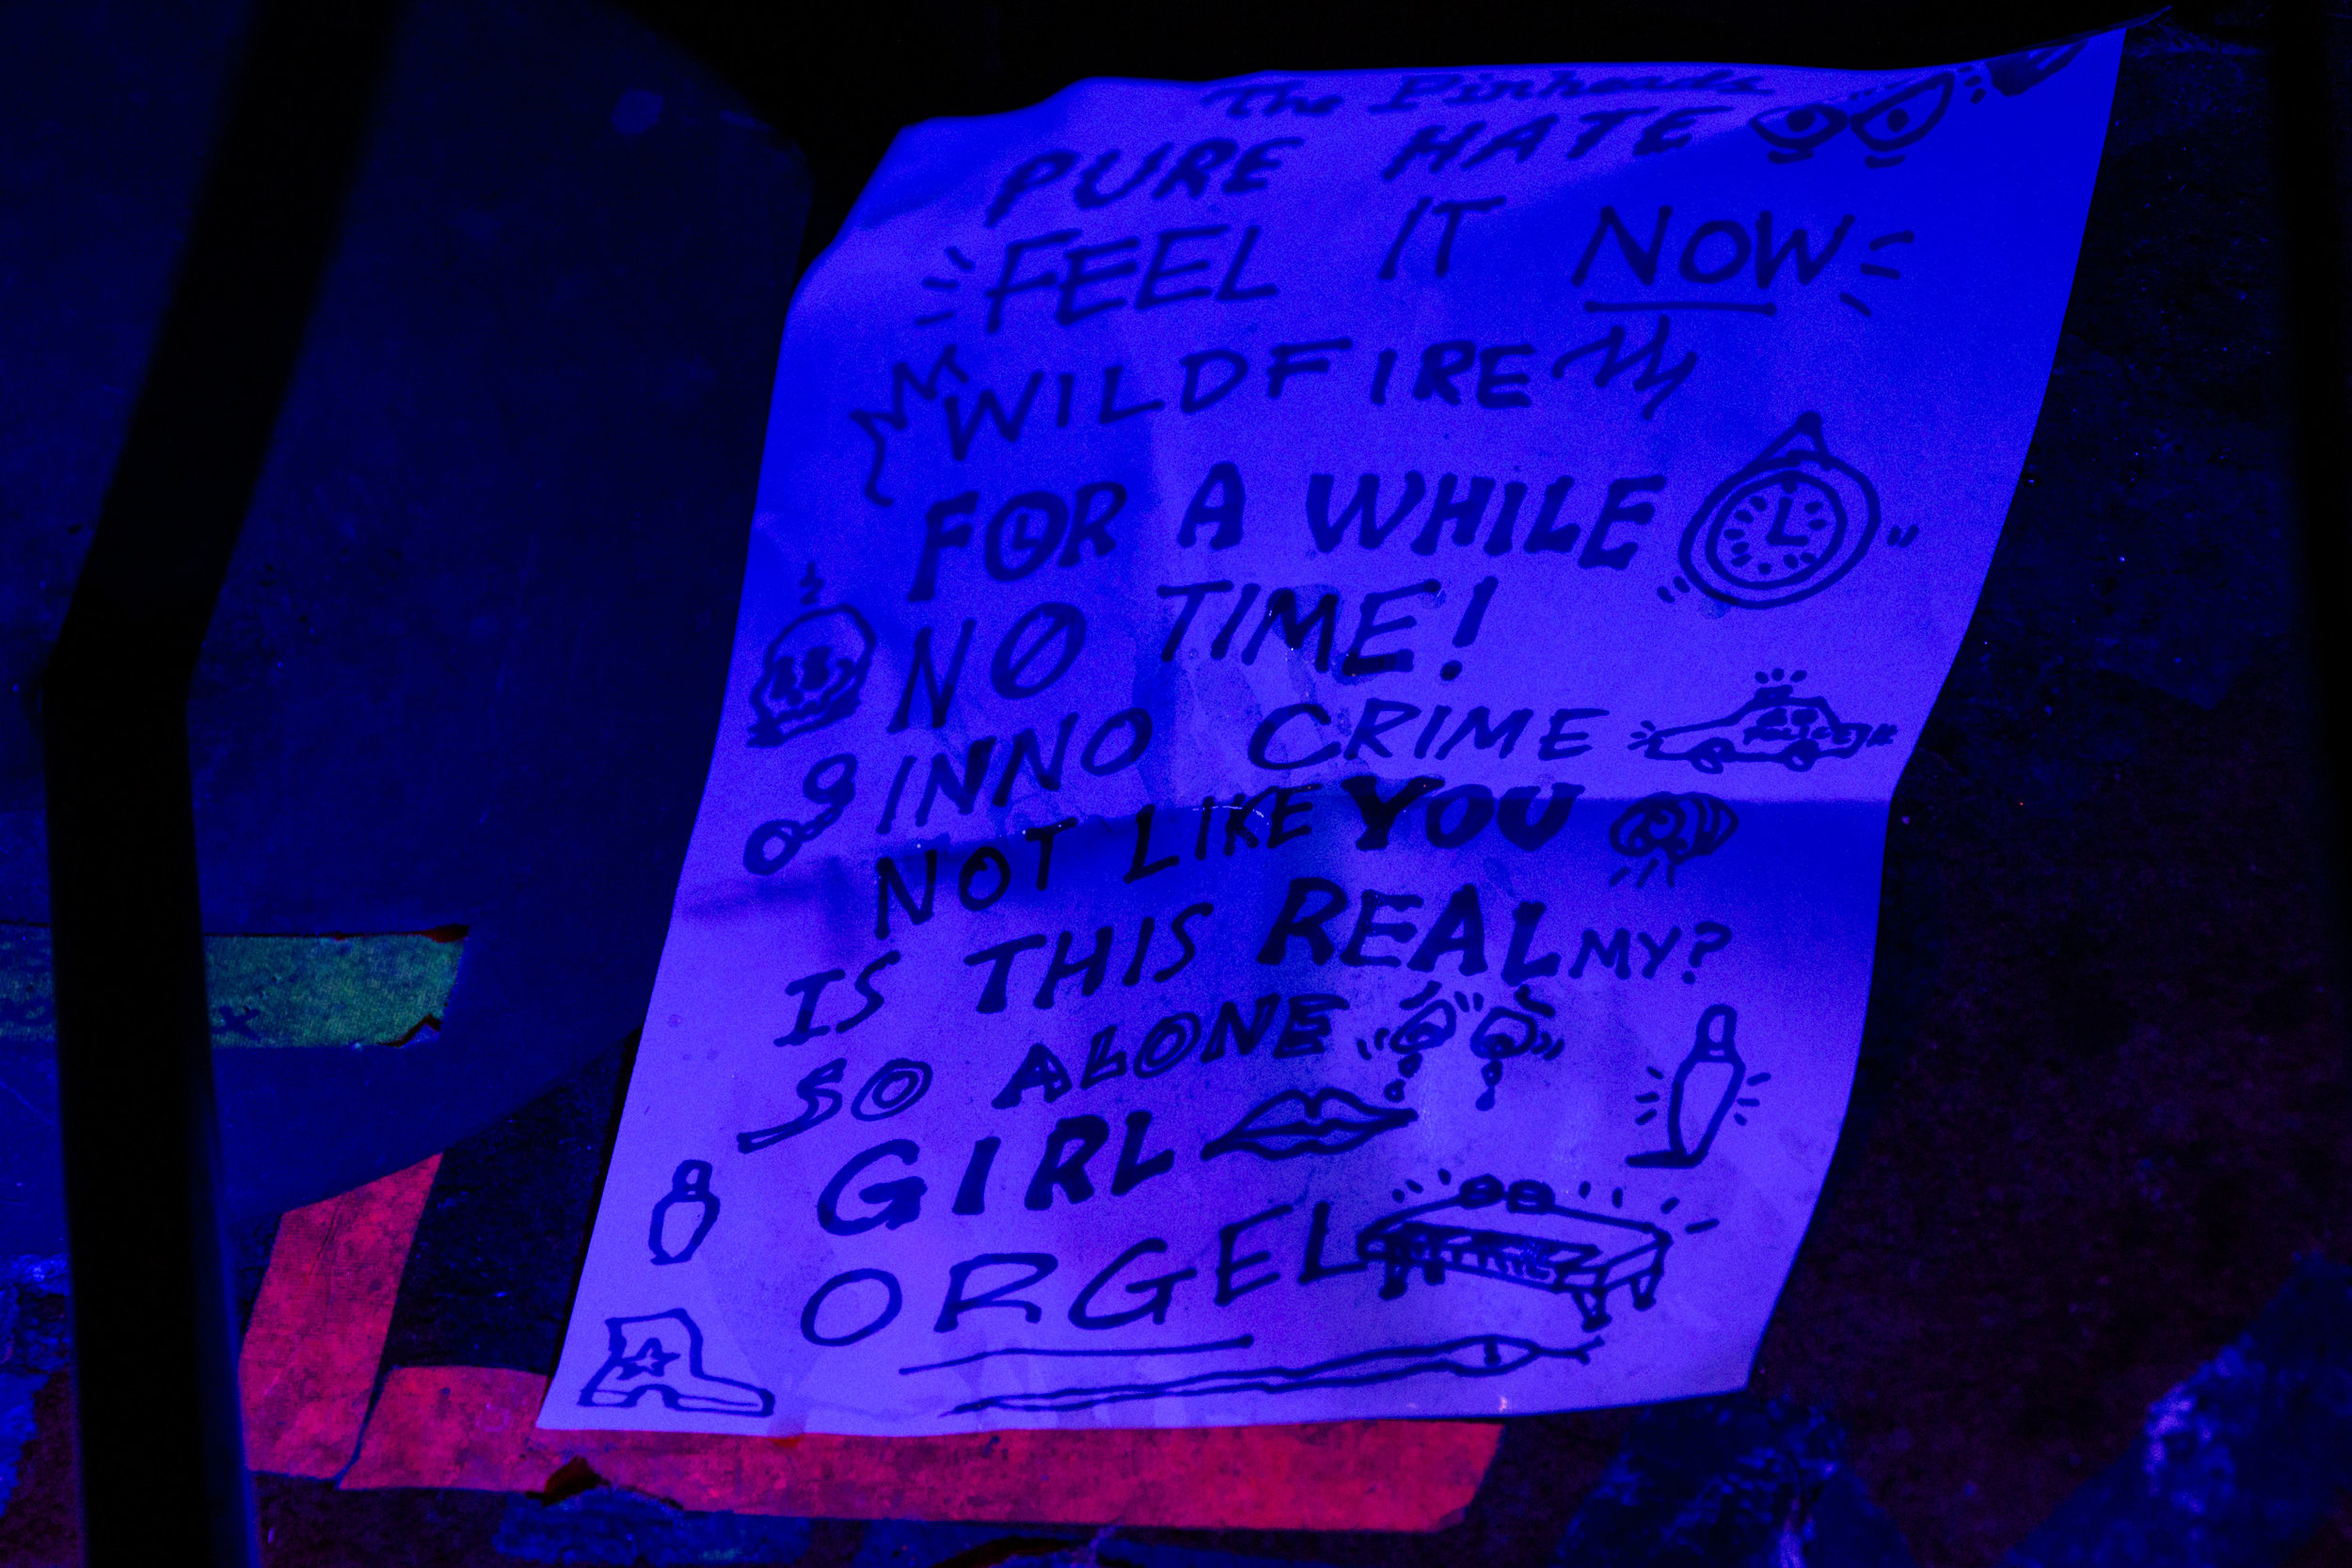 The Pinheads
PURE HATE
FEEL IT NOW
WILDFIRE
FOR A WHILE
NO TIME!
INNO CRIME
NOT LIKE YOU
IS THIS REAL MY?
SO ALONE
GIRL
ORGEL